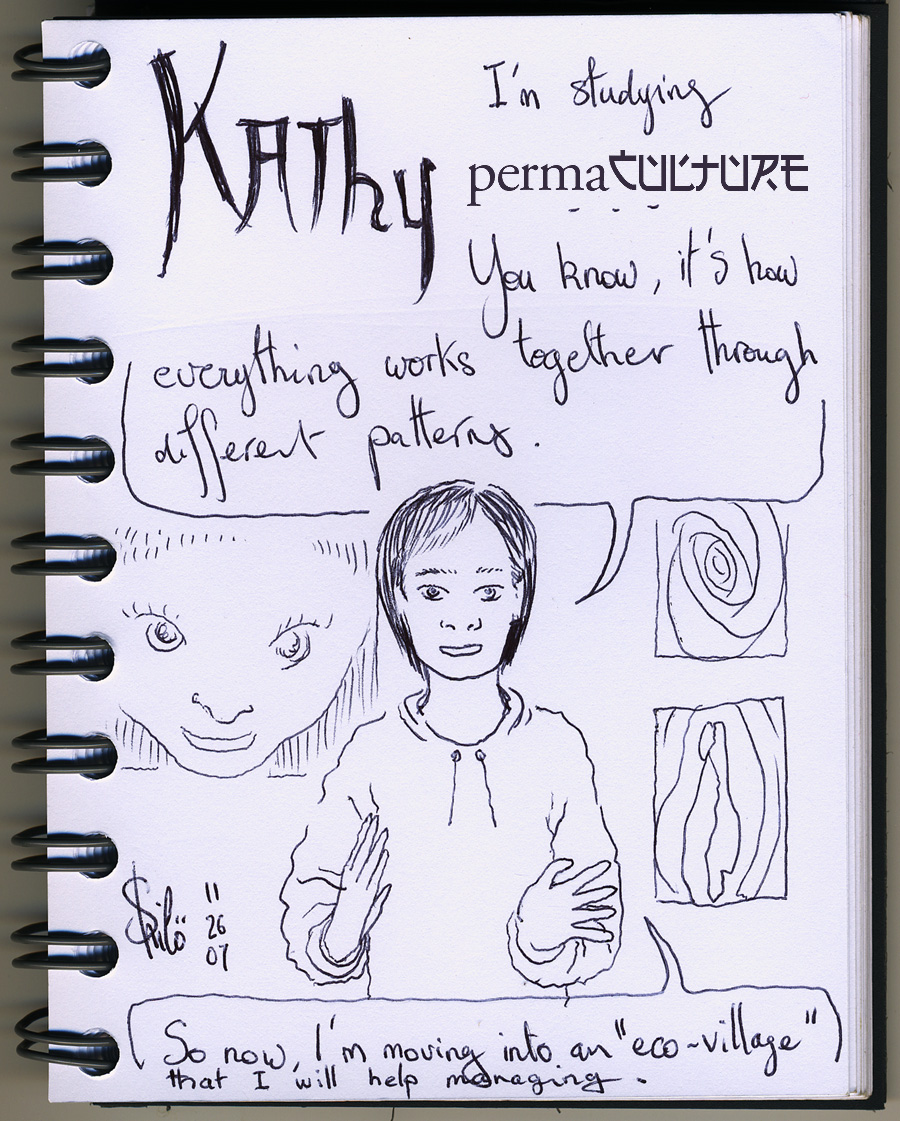 KAThy
I'm studying
permaCULTURE
- - -
You know, it's how
everything works together through
different patterns.
11
26
07
So now, I'm moving into an "eco-village"
that I will help managing.